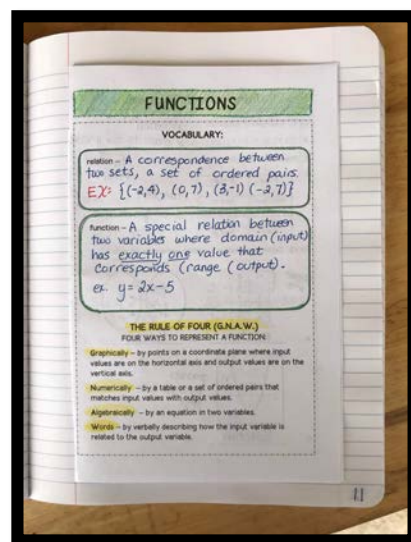 FUNCTIONS
VOCABULARY:
relation – A correspondence between
two sets, a set of ordered pairs.
EX: {(-2,4), (0,7), (3,-1) (-2,7)}
function – A special relation between
two variables where domain (input)
has exactly one value that
corresponds (range (output).
ex. y = 2x - 5
THE RULE OF FOUR (G.N.A.W.)
FOUR WAYS TO REPRESENT A FUNCTION:
Graphically – by points on a coordinate plane where input
values are on the horizontal axis and output values are on the
vertical axis.
Numerically – by a table or a set of ordered pairs that
matches input values with output values.
Algebraically – by an equation in two variables.
Words – by verbally describing how the input variable is
related to the output variable.
11